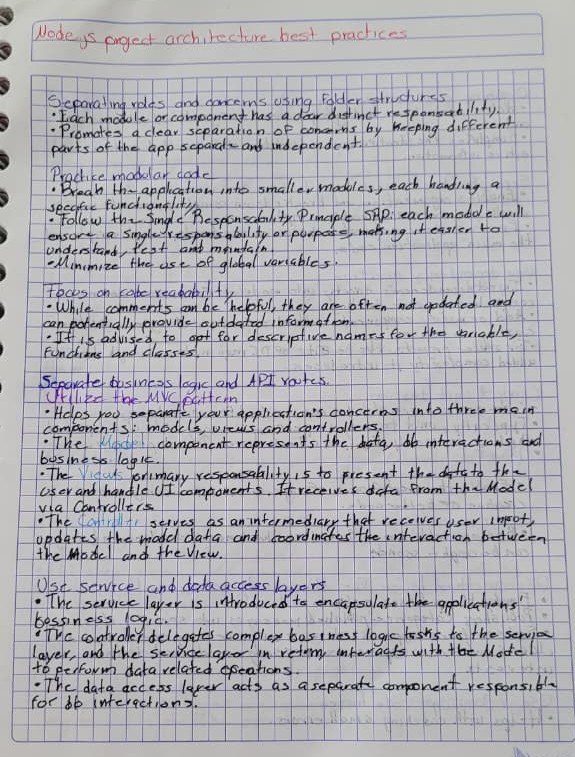 Nodejs project architecture best practices
Separating roles and concerns using folder structures
• Each module or component has a clear distinct responsability.
• Promotes a clear separation of concerns by keeping different
parts of the app separate and independent.
Practice modular code
• Break the application into smaller modules, each handling a
specific functionality
• Follow the Single Responsability Principle SRP: each module will
ensure a single responsability or purpose, making it easier to
understand, test and maintain.
• Minimize the use of global variables.
Focus on code readability
• While comments can be helpful, they are often not updated and
can potentially provide outdated information.
• It is advised to opt for descriptive names for the variable,
functions and classes.
Separate business logic and API routes.
Utilize the MVC pattern
• Helps you separate your application's concerns into three main
components: models, views and controllers.
• The Model component represents the data, db interactions and
business logic.
• The Views primary responsability is to present the data to the
user and handle UI components. It receives data from the Model
via Controllers
• The Controller serves as an intermediary that receives user input,
updates the model data and coordinates the interaction between
the Model and the View.
Use service and data access layers
• The service layer is introduced to encapsulate the applications'
bessiness logic.
• The controller delegates complex business logic tasks to the service
layer, and the service layer in return, interacts with the Model
to perform data related operations.
• The data access layer acts as a separate component responsible
for db interactions.